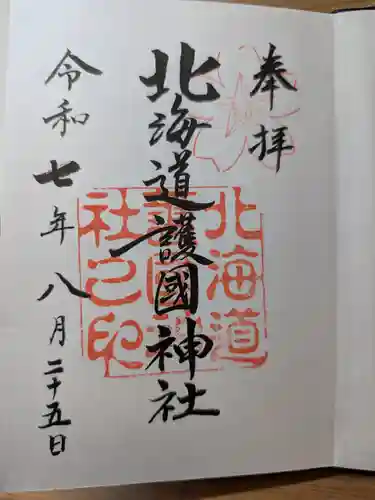 奉拝
北海道護國神社
令和七年八月二十五日
北海道
護國神
社之印